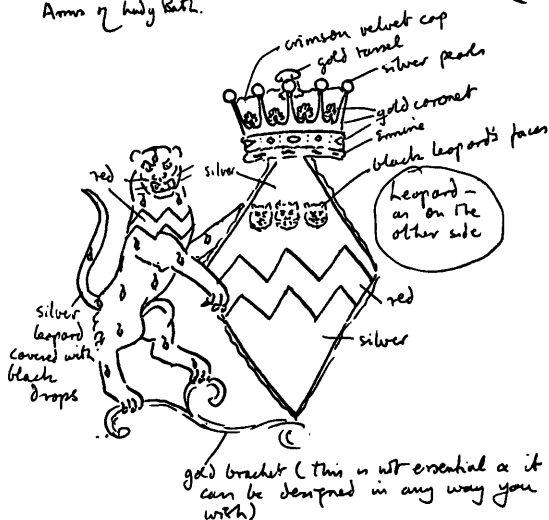 Arms of Lady Bath.
crimson velvet cap
gold tassel
silver pearls
gold coronet
ermine
black leopard's faces
silver
red
Leopard –
as on the
other side
red
silver
silver
leopard
covered with
black
drops
gold bracket (this is not essential & it
can be designed in any way you
wish)